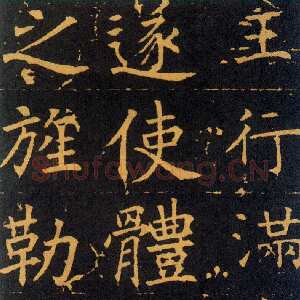 主行滿
遂使體
之旌勒
Shufawang.CN